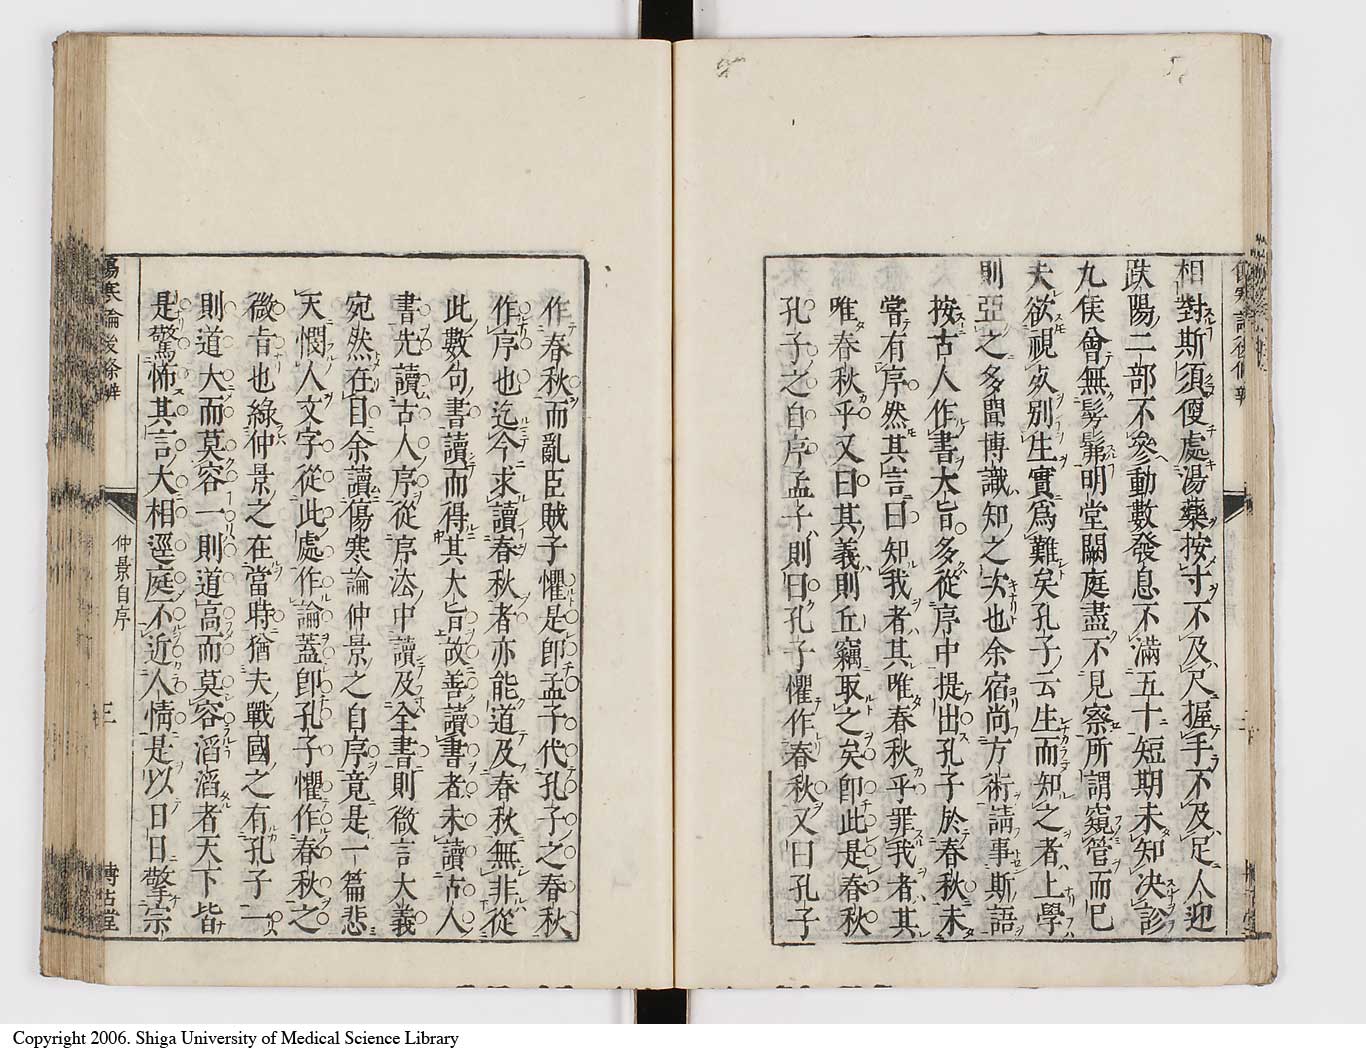 相對斯須便處湯藥按寸不及尺握手不及足人迎
趺陽二部不參動數發息不滿五十短期未知決診
九侯曾無髣髴明堂闕庭盡不見察所謂窺管而已
夫欲視死別生實爲難矣孔子云生而知之者上學
則亞之多聞博識知之次也余宿尚方術請事斯語
按古人作書大旨多從序中提出孔子於春秋未
嘗有序然其言曰知我者其唯春秋乎罪我者其
唯春秋乎又曰其義則丘竊取之矣卽此是春秋
孔子之自序孟子則曰孔子懼作春秋又曰孔子
作春秋而亂臣賊子懼是卽孟子代孔子之春秋
作序也迄今求讀春秋者亦能道及春秋無非從
此數句書讀而得其大旨故善讀書者未讀古人
書先讀古人序從序法中讀及全書則微言大義
宛然在目余讀傷寒論仲景之自序竟是一篇悲
天憫人文字從此處作論蓋卽孔子懼作春秋之
微旨也緣仲景之在當時猶夫戰國之有孔子一
則道大而莫容一則道高而莫容滔滔者天下皆
是驚怖其言大相逕庭不近人情是以日日擎宗
傷寒論後條辨
仲景自序
三
博古堂
Copyright 2006. Shiga University of Medical Science Library